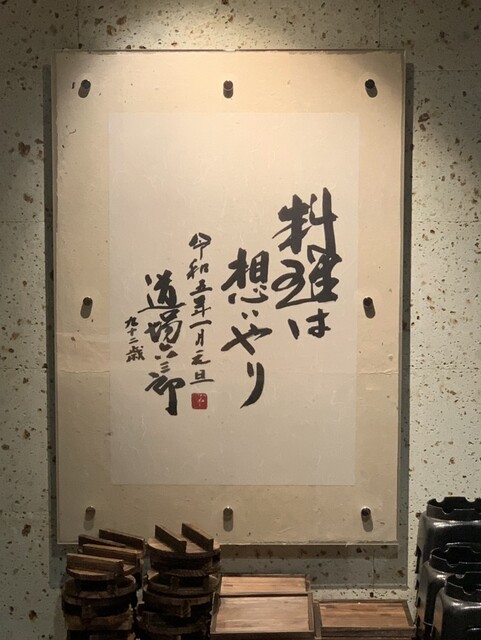 料理は
想いやり
令和五年一月元旦
道場六三郎
九十二歳